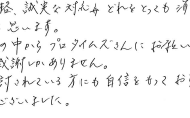 格、誠実な対応 どれをとっても
思います。
の中からプロタイムズさんにお
感謝しかありません。
討されている方にも自信をもってお
ございました。